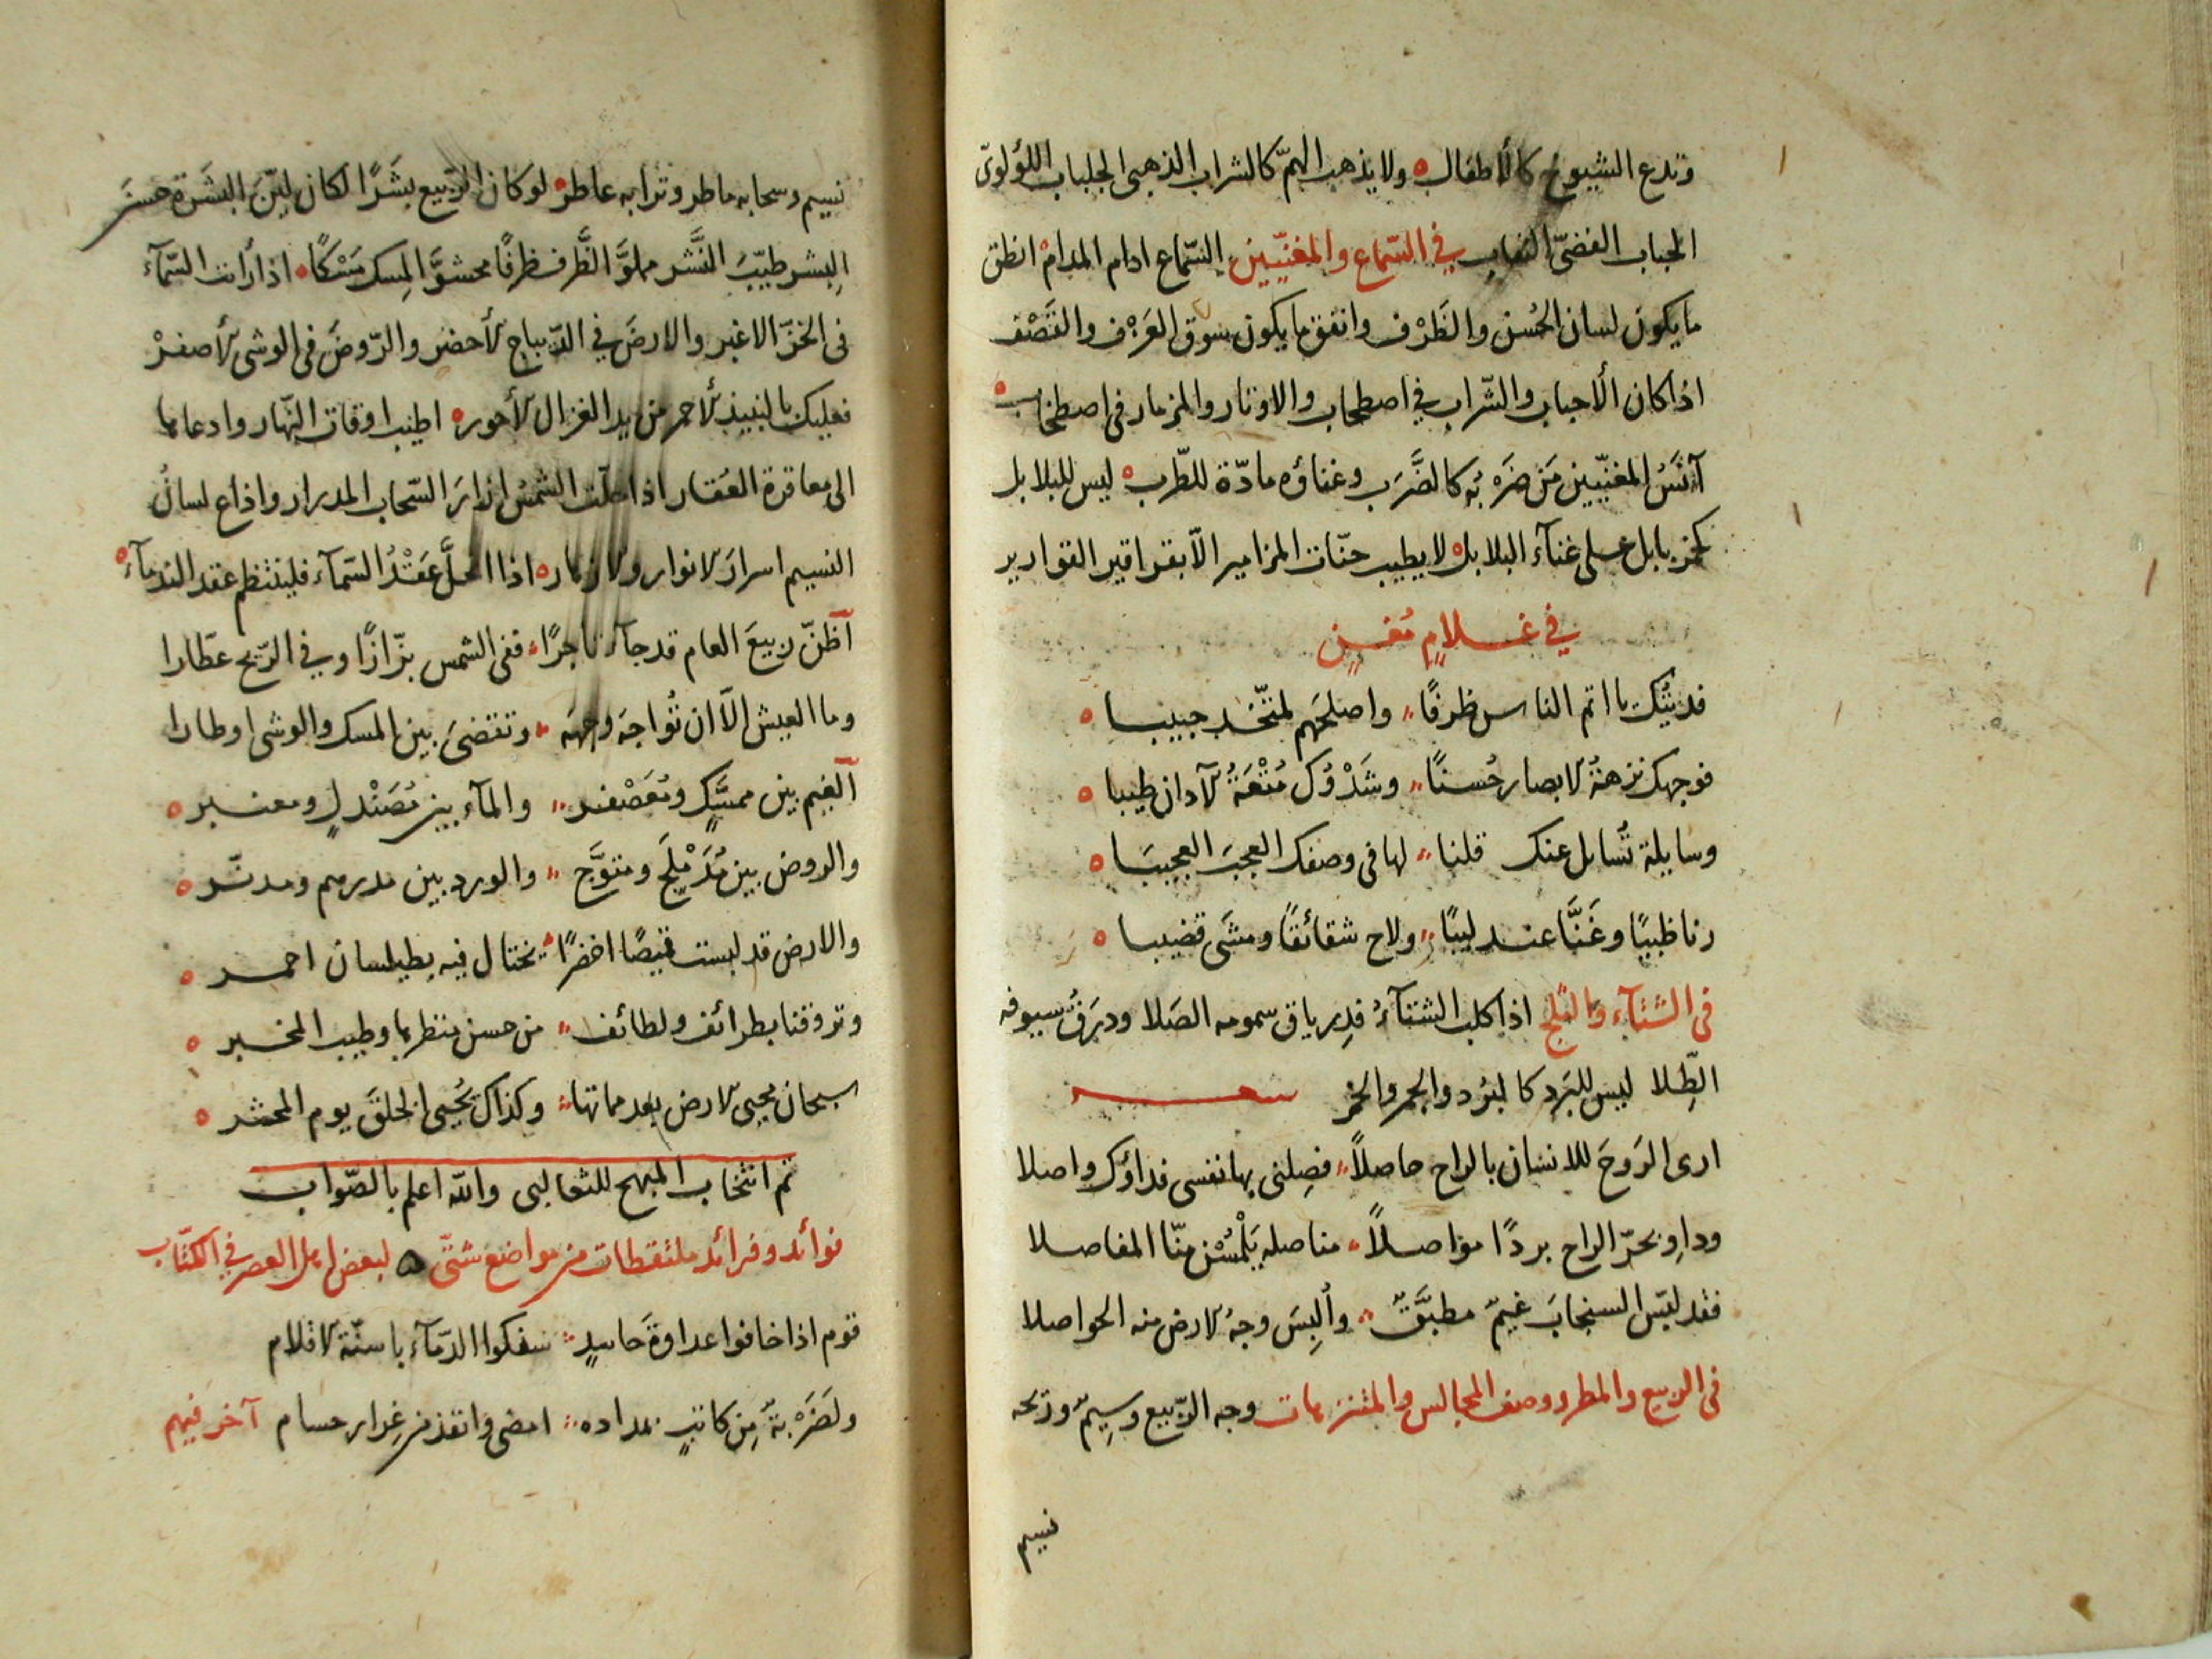 وتدع الشيوخ كالأطفال ولا يذهب الهمّ كالشراب الذهبى الجلباب اللؤلوىّ
الحباب الفضىّ النقاب في السّماع والمغنّيين السّماع ادام المدام انطق
ما يكون لسان الحُسن والظَرْف وانفق ما يكون سوق العَزْف والقَصْف
اذا كان الأحباب والشّراب في اصطحاب والاوتار والمزمار فى اصطخاب
آنَسُ المغنّيين مَن ضَرْبُه كالضَّرَب وغناؤه مادّة للطّرب ليس للبلابل
كخمر بابل على غنآء البلابل لا يطيب حنّات المزامير الاّ بقراقير القوارير
في غلامٍ مُغنٍ
فديتُك يا اتم الناس ظرفًا واصلحَهم لمتّخذ حبيبا
فوجهك نزهةُ لابصار حُسنًا وشَدْوُك مُتْعَةُ لآذان طيبا
وسايلة تُسايل عنك قلنا لها فى وصفك العجبَ العجيبَا
رنا ظبيًا وغَنَّا عندليبًا ولاح شقائقًا ومشَى قضيبا
فى الشتآء والثلج اذا كلب الشتآءُ فدِرياق سمومه الصَلا ودبرَقُ سيوفه
الطِّلا ليس للبَرد كالبُرد والجمر والخمر شعر
ارى الرَوحَ للانسان بالراح حاصلاً فصِلنى بها نفسى فداؤك واصلا
وداوِ بحرّ الراح بردًا مؤاصلاً مناصله يَلْمُسْن منّا المفاصلا
فقد لبَس السنجابَ غيمٌ مطبَّقٌ وألبِسَ وجهُ لارض منه الحواصلا
فى الربيع والمطر ووصف المجالس والمتنزهات وجه الرّبيع وسِيمٌ وريحه
نسيم
نسيم وسحابه ماطر وترابه عاطر لو كان الرّبيع بشَرًا لكان ليّنَ البشَرة حسنَ
البِشر طيّبَ النَّشر مملوَّ الظَّرف ظرفًا محشوَّ المِسك مَسْكًا اذا رأيت السّمآء
فى الخزّ الاغبر والارضَ في الدّيباج لأخضر والرّوضَ فى الوشى لأصفرْ
فعليك بالنبيذ لأحمر من يد الغزال لأحور اطيب اوقات النّهار وادعاها
الى معاقرة العُقار اذا حلّت الشمسُ ازارَ السّحاب المدرار واذاع لسانُ
النسيم اسرارَ لانوار ولازهار اذا انحلَّ عَقْدُ السّمآء فلينتظم عقد الندمآء
آظنّ ربيعَ العام قد جآء تاجرًا ففى الشمس بزّازًا وفي الرّيح عطّارا
وما العيش الاّ ان تُواجهَ وجهَه وتقتضىَ بين المسك والوشى اوطارا
آلغيم بين ممسَّكٍ ومُعَصْفر والمآء بين مُصَنْدلٍ ومعنبر
والروض بين مُدَمْلَجٍ ومتوَّج والورد بين مدرهم ومدنّر
والارض قد لبست قميصًا اخضرًا يختال فيه بطيلسان احمر
وتروقنا بطرائف ولطائف من حسن منظرها وطيب المخبر
سبحان محيى لارض بعد مماتها وكذاك يُحيى الخلقَ يوم المحشر
تم انتخاب المبهج للثعالبى والله اعلم بالصّواب
فوائد وفرائد ملتقطات من مواضع شتّى لبعض اهل العصر في الكتّاب
قوم اذا خافوا عداوةَ حاسدٍ سفكوا الدّمآء باسنّة لاقلام
ولَضَرْبةٌ مِن كاتبٍ بمداده امضى وانفذ من غِرار حسام آخر فيهم